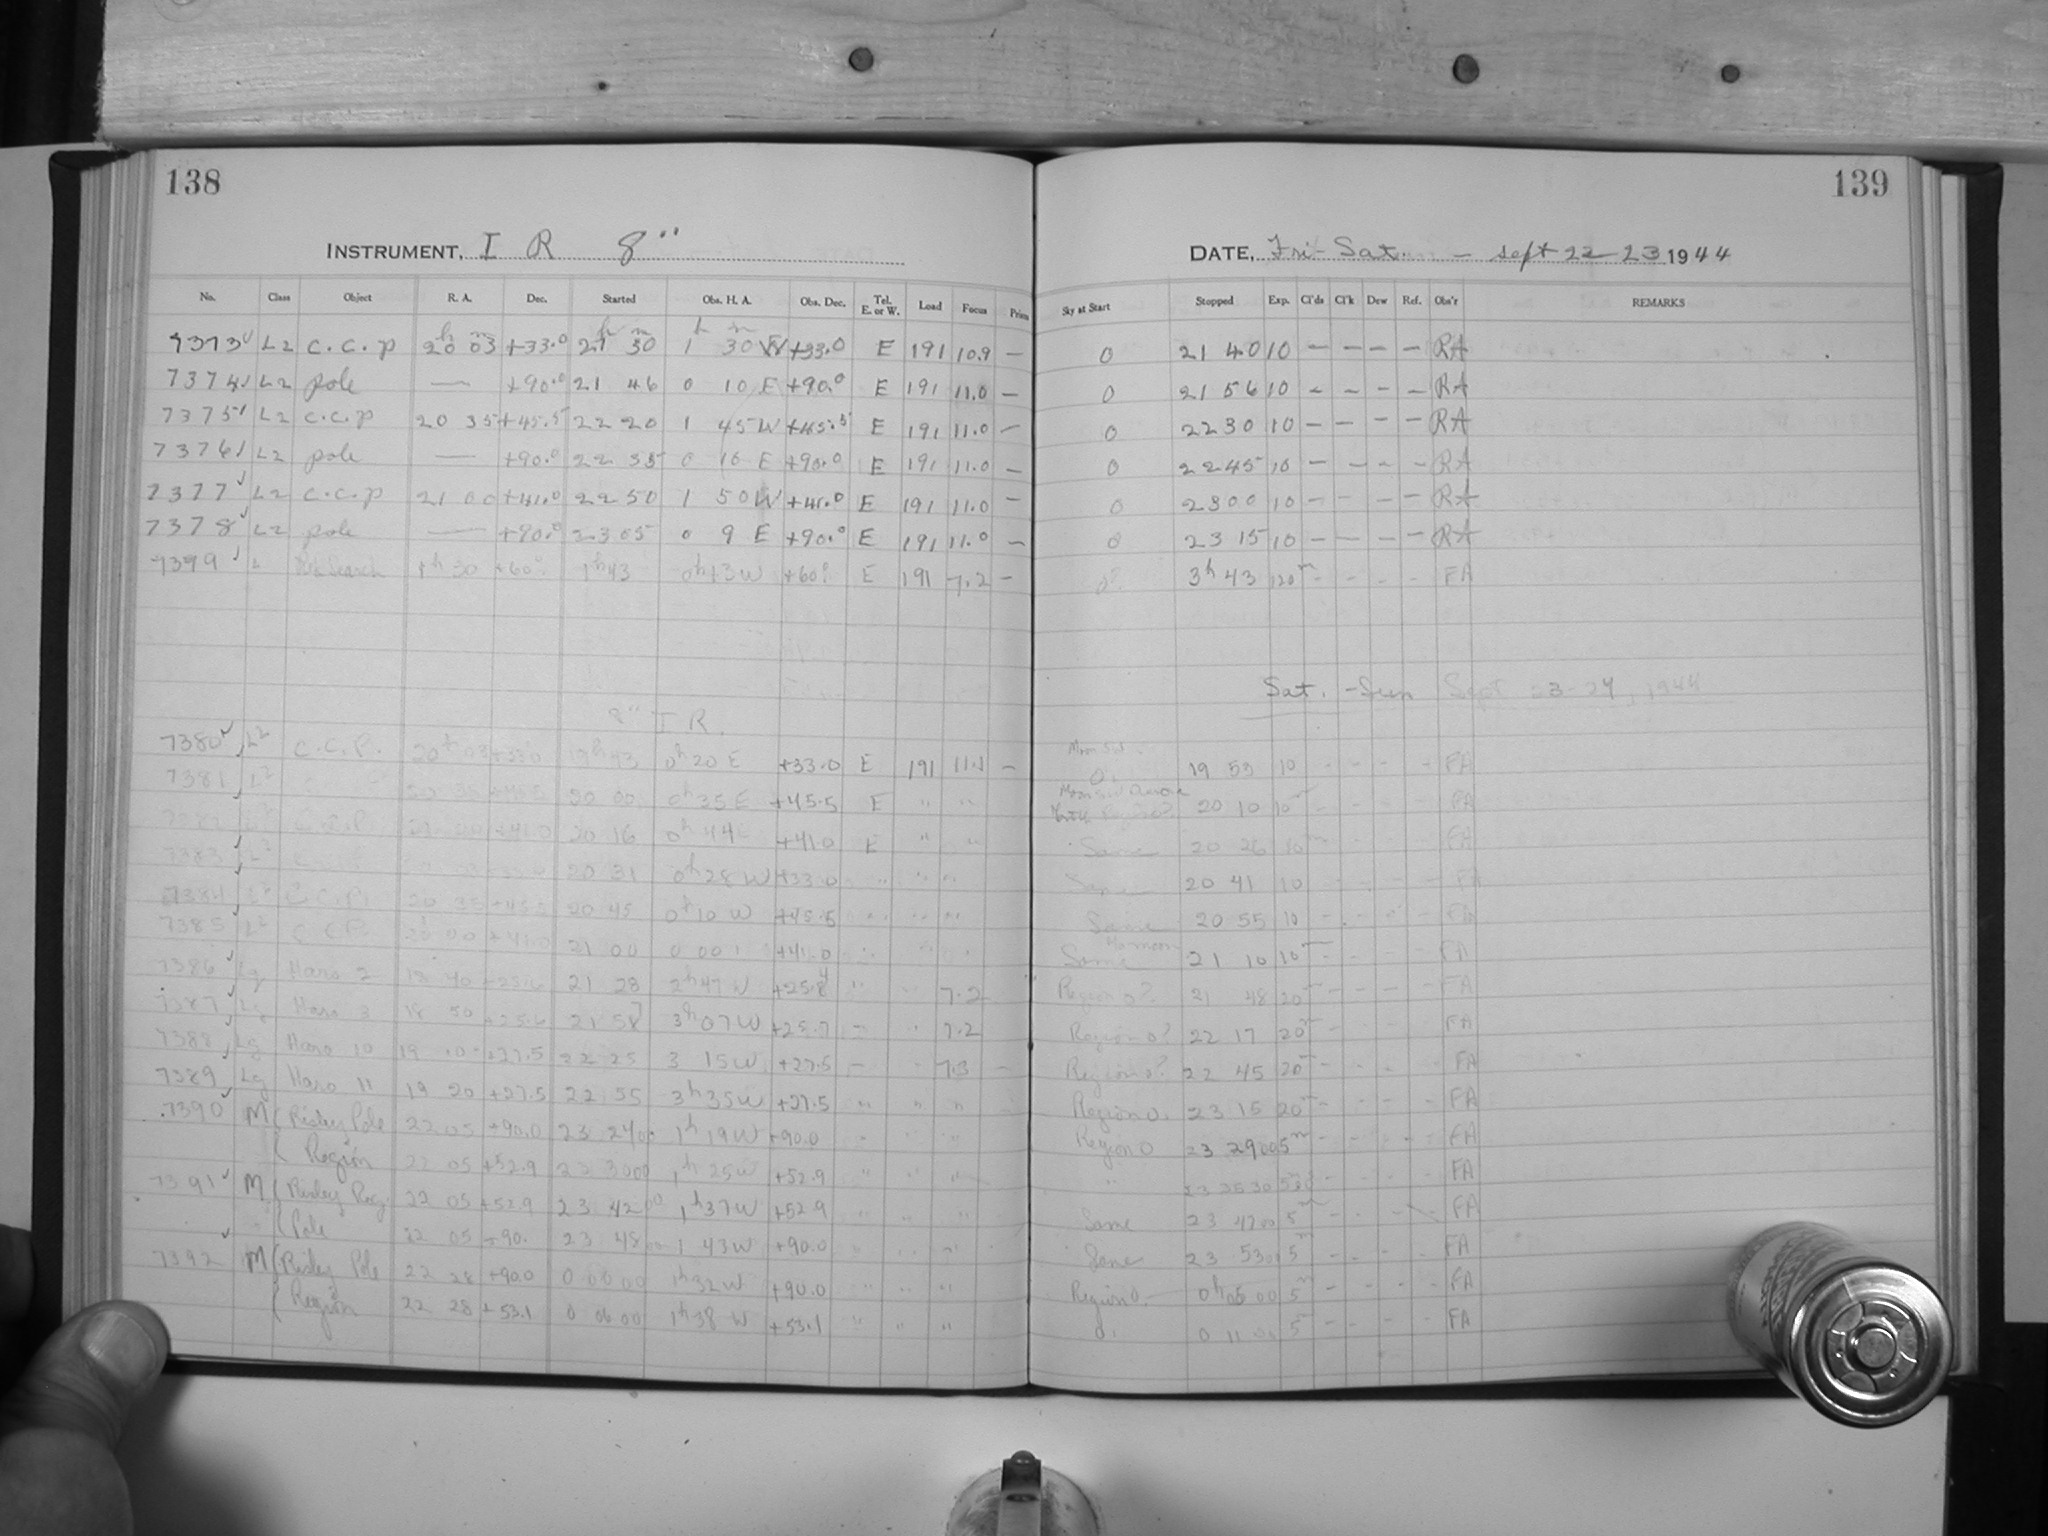 138
INSTRUMENT, I R 8"
No. Class Object R. A. Dec. Started Obs. H. A. Obs. Dec. Tel. E. or W. Load Focus Prism
7373 L2 C.C.P 20h 03m +33.0 21h 30m 1h 30m W +33.0 E 191 10.9 —
7374 L2 pole — +90.0 21 46 0 10 E +90.0 E 191 11.0 —
7375 L2 C.C.P 20 35 +45.5 22 20 1 45 W +45.5 E 191 11.0 —
7376 L2 pole — +90.0 22 35 0 10 E +90.0 E 191 11.0 —
7377 L2 C.C.P 21 00 +41.0 22 50 1 50 W +41.0 E 191 11.0 —
7378 L2 pole — +90.0 23 05 0 9 E +90.0 E 191 11.0 —
7379 L 1h 30 +60° 1h 43 0h 13 W +60° E 191 7.2 —
8" I R.
7380 L2 C.C.P. 20h 03 +33.0 19h 43 0h 20 E +33.0 E 191 11.1 —
7381 L2 20 35 +45.5 20 00 0h 35 E +45.5 E " "
7382 L2 C.C.P. 21 00 +41.0 20 16 0h 44 E +41.0 E " "
7383 L2 20 31 0h 28 W +33.0 " " "
7384 L2 C.C.P. 20 35 +45.5 20 45 0h 10 W +45.5 " " "
7385 L2 C.C.P. +41.0 21 00 0 00 +41.0 " " "
7386 Lg Haro 2 18 40 +25.6 21 28 2h 47 W " 7.2
7387 Lg Haro 3 18 50 +25.6 21 57 3h 07 W +25.7 " 7.2
7388 Lg Haro 10 19 10 +27.5 22 25 3 15 W +27.5 " 7.3 —
7389 Lg Haro 11 19 20 +27.5 22 55 3h 35 W +27.5 " " "
7390 M Risley Pole 22 05 +90.0 23 24 00 1h 19 W +90.0 " " "
Region 22 05 +52.9 23 30 00 1h 25 W +52.9 " " "
7391 M Risley Reg. 22 05 +52.9 23 42 00 1h 37 W +52.9 " " "
Pole 22 05 +90. 23 48 00 1 43 W +90.0 " " "
7392 M Risley Pole 22 28 +90.0 0 00 00 1h 32 W +90.0 " " "
Region 22 28 +53.1 0 06 00 1h 38 W +53.1 " " "
139
DATE, Fri-Sat. — Sept 22-23 1944
Sky at Start Stopped Exp. Cl'ds Cl'k Dew Ref. Obs'r REMARKS
0 21 40 10 — — — — RA
0 21 56 10 — — — — RA
0 22 30 10 — — — — RA
0 22 45 10 — — — — RA
0 23 00 10 — — — — RA
0 23 15 10 — — — — RA
0? 3h 43 120m - - - - FA
Sat. - Sun Sept 23-24, 1944
Moon
0. 19 53 10 - - - - FA
Moon Aurora
20 10 10m - - - - FA
Same 20 26 10m - - - - FA
Same 20 41 10 - - - - FA
Same 20 55 10 - - - - FA
No moon
Same 21 10 10m - - - - FA
Region 0? 21 48 20m - - - - FA
Region 0? 22 17 20m - - - - FA
Region 0? 22 45 20m - - - - FA
Region 0. 23 15 20m - - - - FA
Region 0 23 29 00 5m - - - - FA
" 23 35 30 FA
Same 23 47 00 5m - - - - FA
Same 23 53 00 5m - - - - FA
Region 0. 0h 05 00 5m - - - - FA
0. 0 11 00 5m - - - - FA